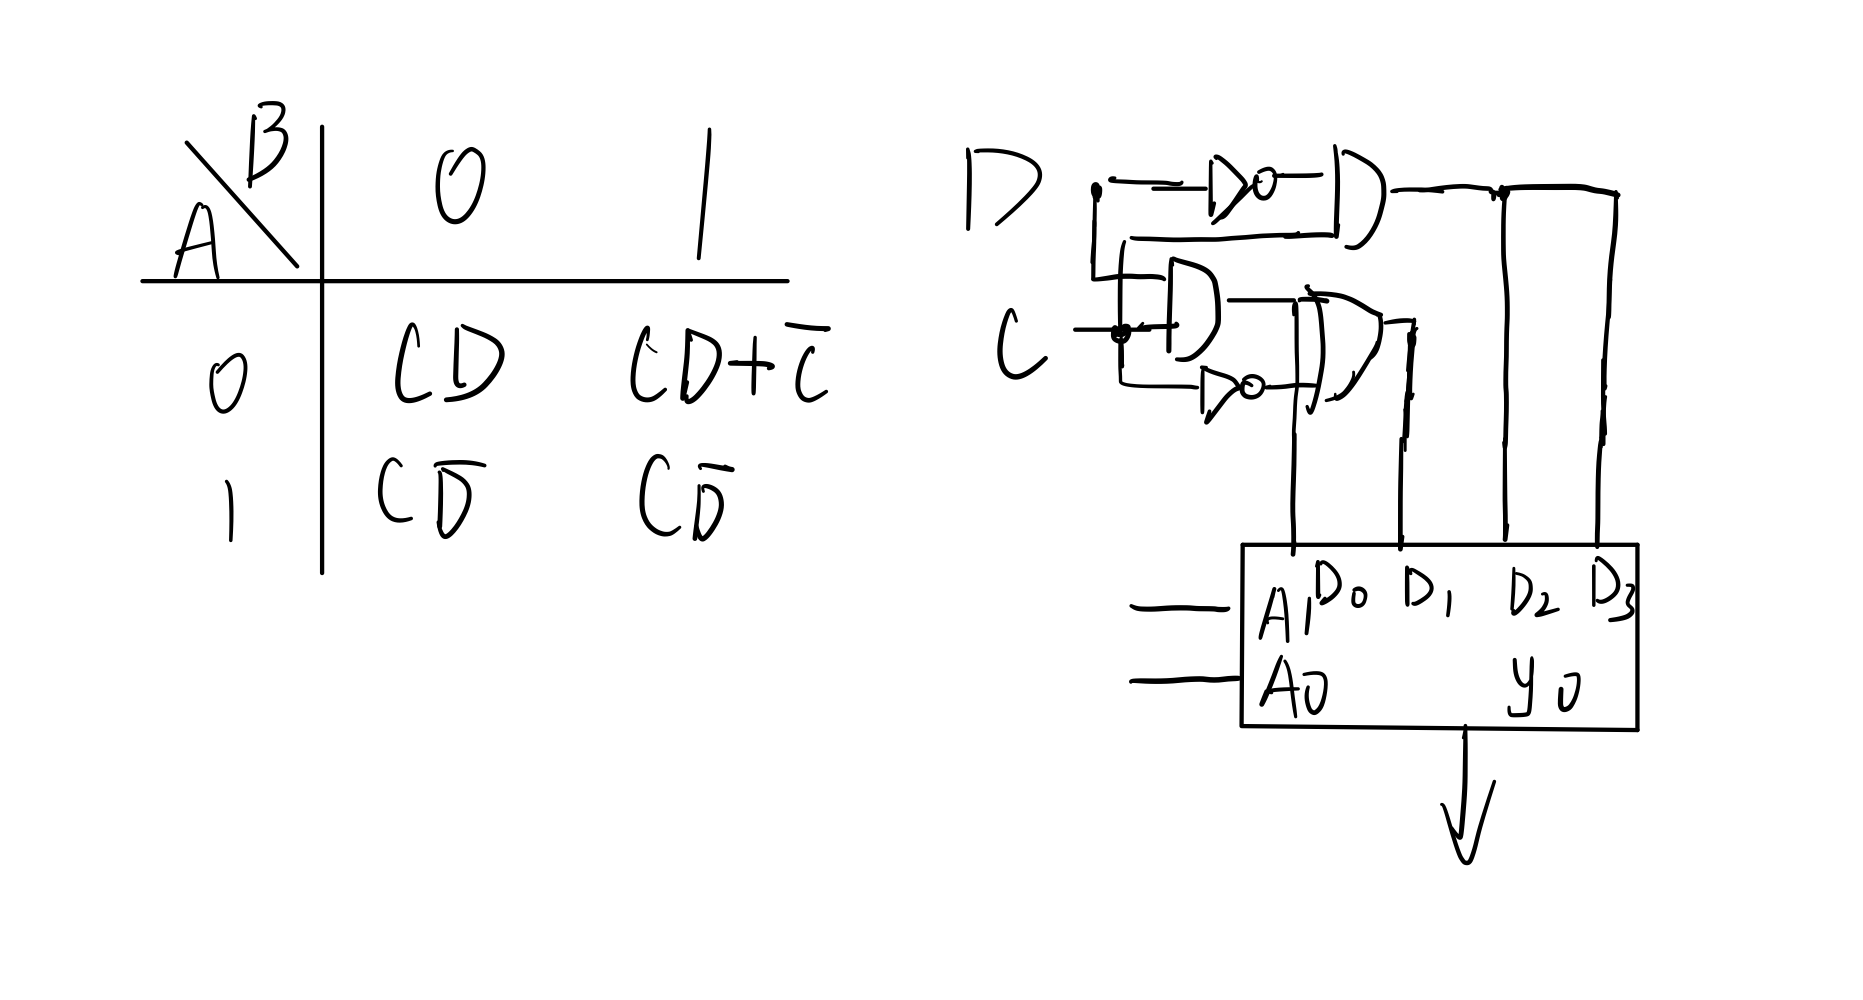 B
A
0 1
0 CD CD+C̅
1 CD̅ CD̅
D
C
D0 D1 D2 D3
A1
A0 Y0